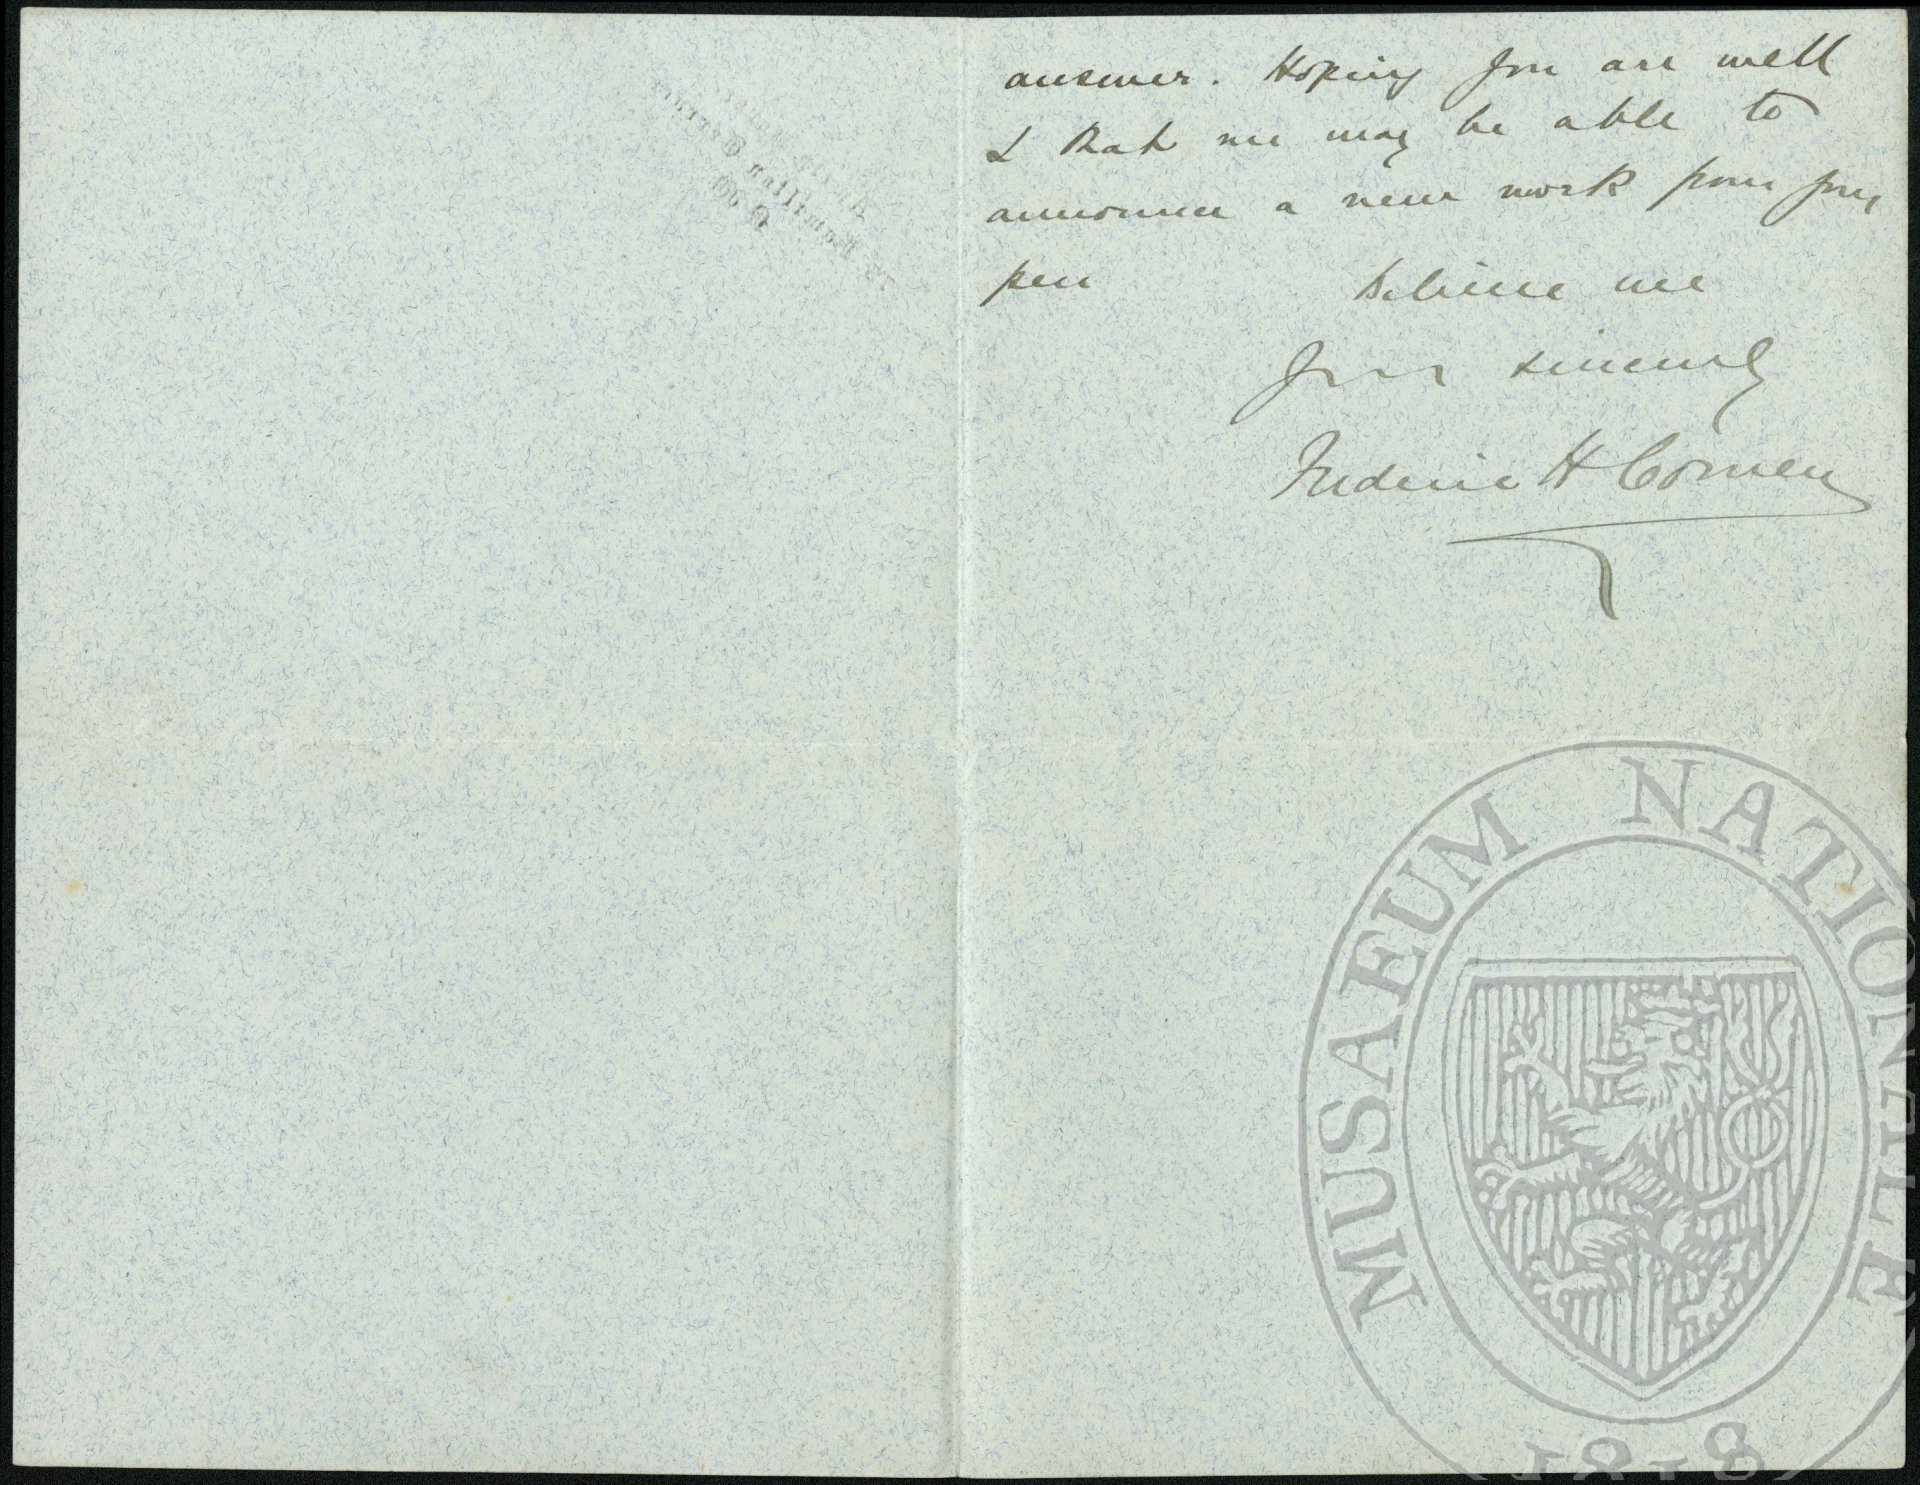 answer. Hoping you are well
& that we may be able to
announce a new work from your
pen
Believe me
Yours sincerely
Frederic H Cowen
75 Hamilton Terrace
N.W.
MUSAEUM NATIONALE
1818